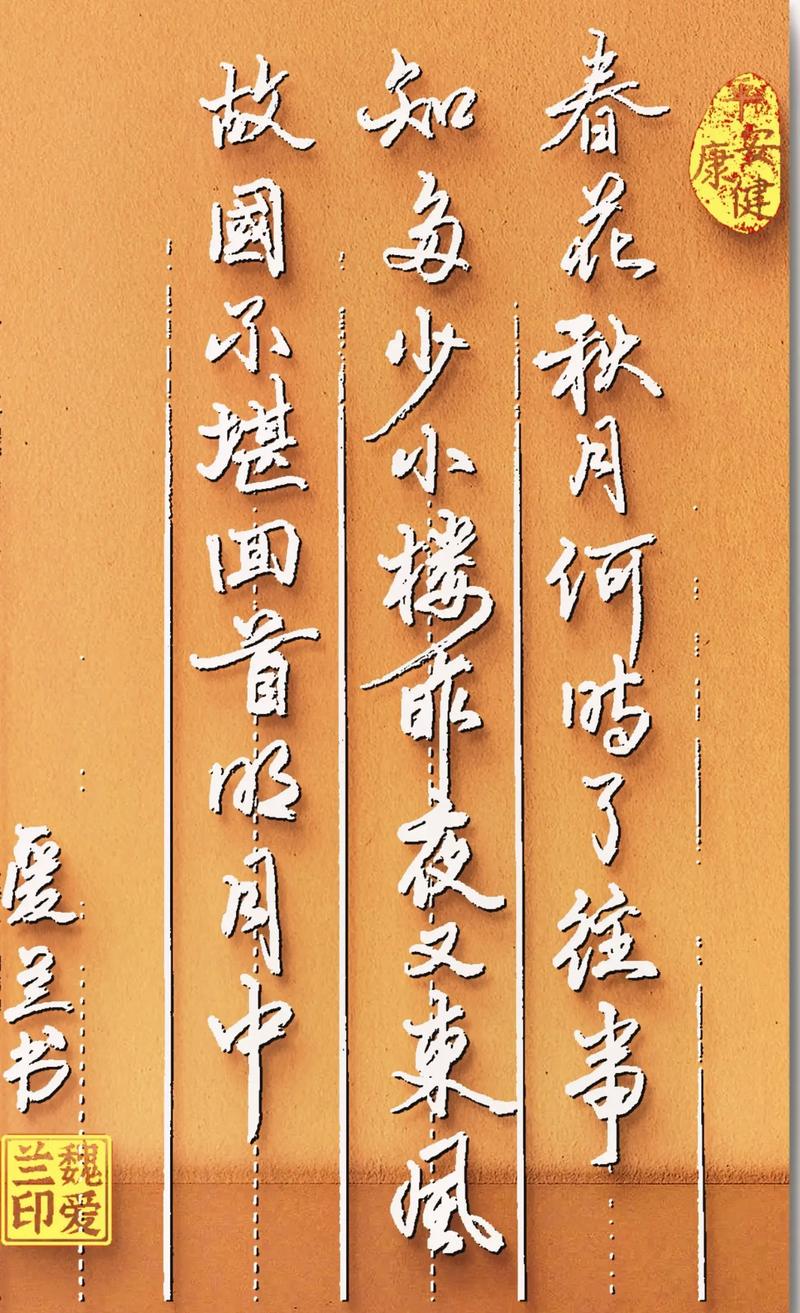 平安健康
春花秋月何時了往事
知多少小楼昨夜又東風
故國不堪回首明月中
爱兰书
魏爱兰印